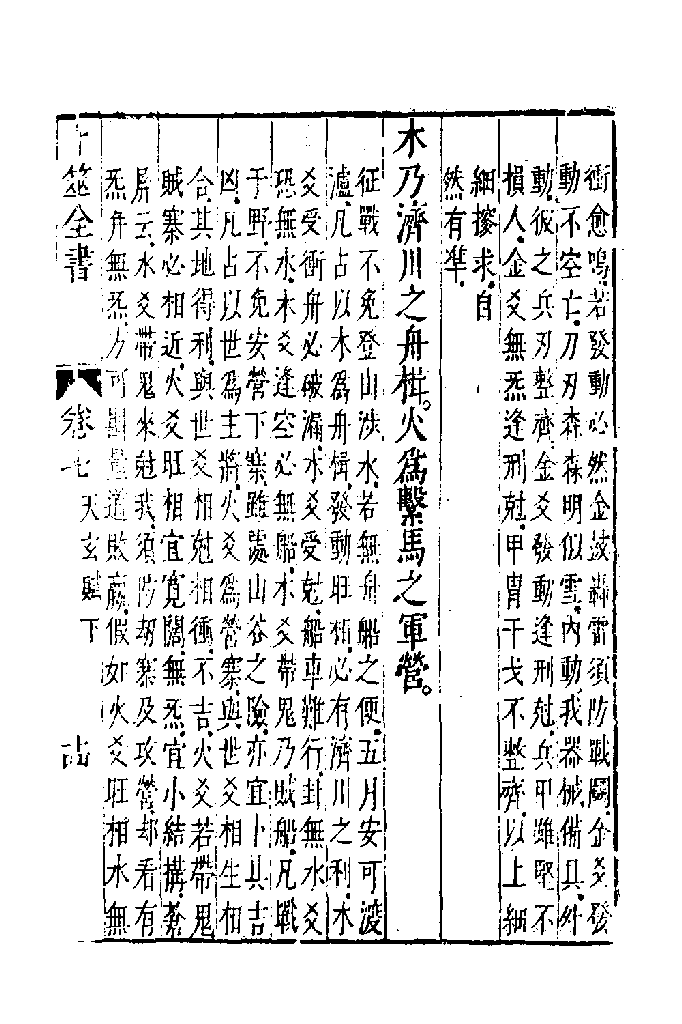 衝愈鳴若發動必然金鼓轟雷須防戰鬬金爻發
動不空亡刀刃森森明似雪內動我器械備具外
動彼之兵刃整齊金爻發動逢刑尅兵甲雖堅不
損人金爻無炁逢刑尅甲冑干戈不整齊以上細
細摉求自
然有準
木乃濟川之舟楫。火為繫馬之軍營。
征戰不免登山涉水若無舟船之便五月安可渡
瀘凡占以木為舟楫發動旺相必有濟川之利木
爻受衝舟必破漏木爻受尅船車難行封無水爻
恐無水木爻逢空必無船木爻帶鬼乃賊船凡戰
于野不免安營下寨雖處山谷之險亦宜卜其吉
凶凡占以世為主將火爻為營寨與世爻相生相
合其地得利與世爻相尅相衝不吉火爻若帶鬼
賊寨必相近火爻旺相宜寬闊無炁宜小結搆
屏云水爻帶鬼來尅我須防刼寨及攻營却看有
炁并無炁方可斟量道敗蠃假如火爻旺相水無
卜筮全書
卷七
天玄賦下